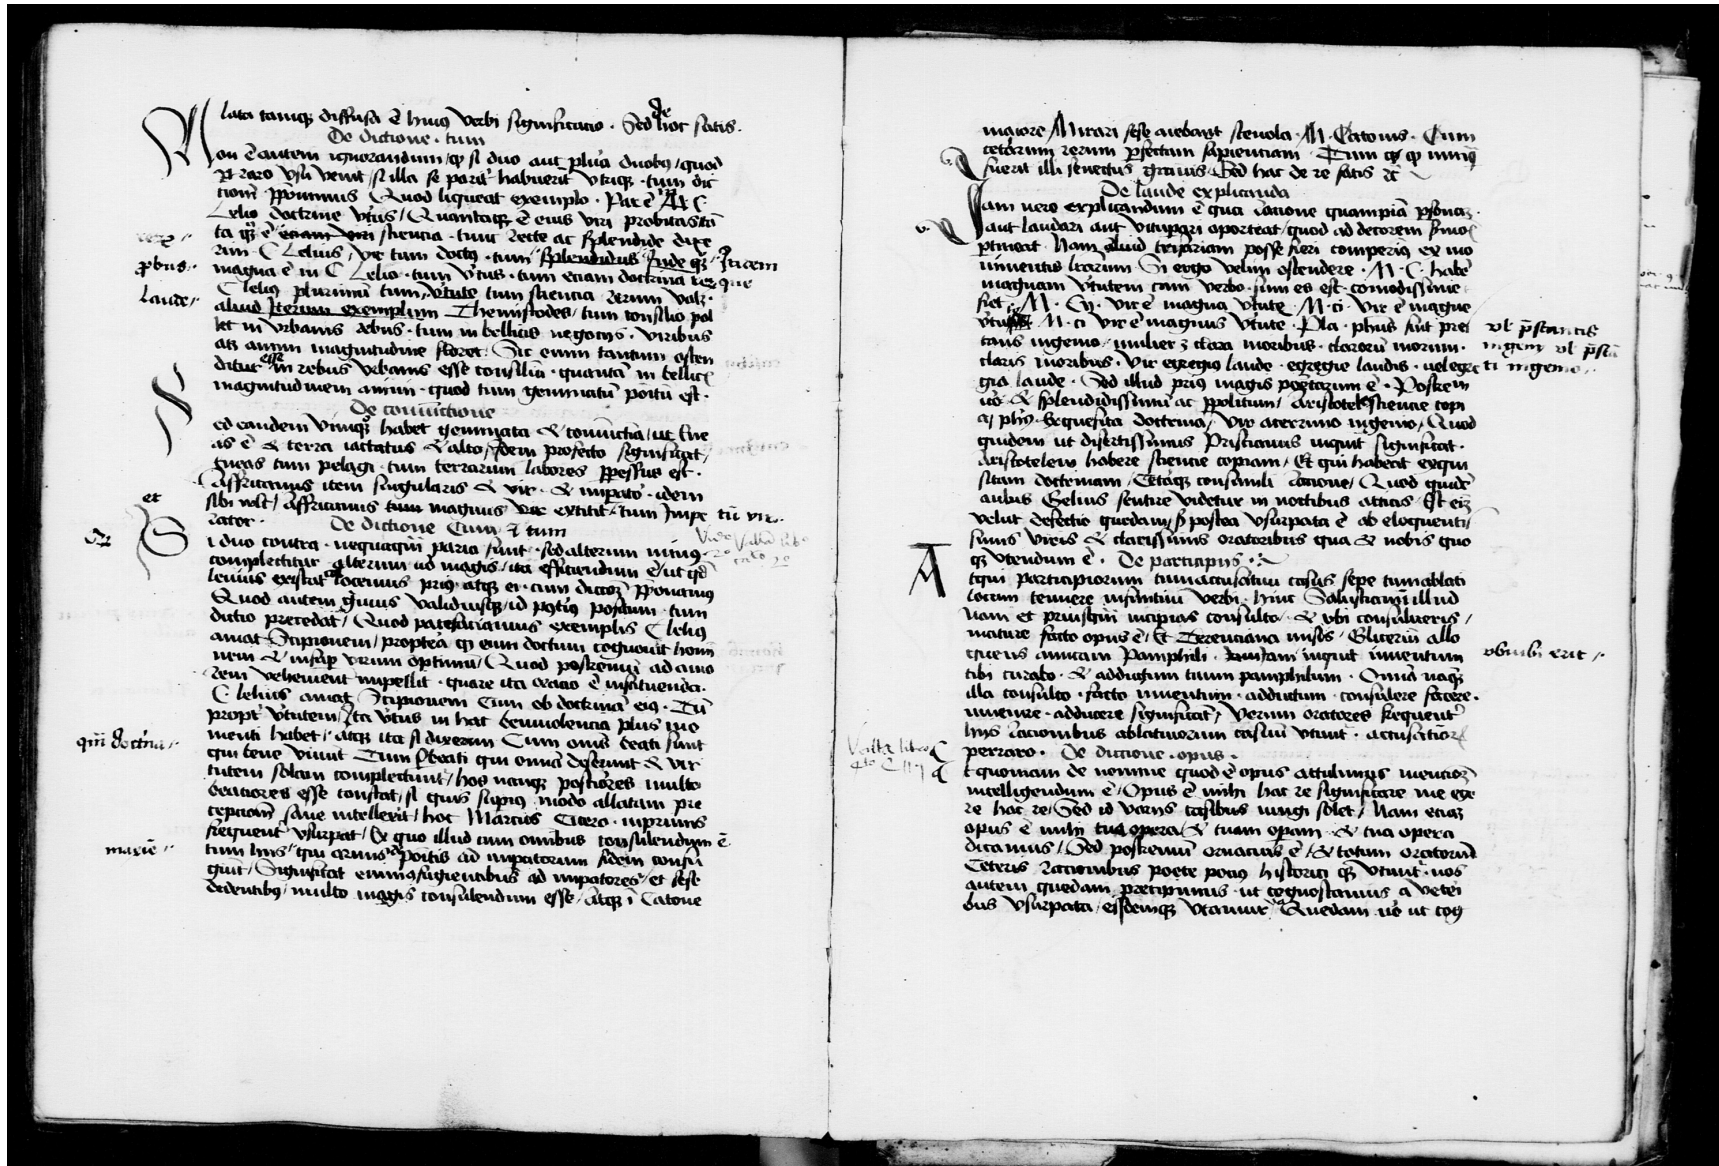 lata tamq diffusa ē huiꝰ verbi significacio . Sed de hoc satis .
De dictione . tum
Non ē autem ignorandum / qꝫ si duo aut plura duobꝰ / quod
raro usu venit / si illa se habuerīt utriqꝫ . tum dic
tionē p̄ponimus Quod liqueat exemplo . Par ē
Lelio doctrine v̓tus / Quantaqꝫ ē eius viri probitas tā
ta qꝫ ē etiam viri sciencia . tunc recte ac splendide dixe
rim . C Lelius / vir tum doctꝰ . tum splendidus Indeqꝫ
magna ē in C Lelio . tum v̓tus . tum etiam doctrina
C leliꝰ plurimū tum v̓tute tum sciencia rerum valꝫ .
aliud Iterum exemplum Themistodes / tum consilio pol
let in vrbanis rebus . tum in bellicis negocijs . viribus
atqꝫ animi magnitudine floret . Sic enim tantum osten
ditur esse in rebus vrbanis esse consiliū . quantā in bellicꝭ
magnitudinem animi . quod tum geminatū positū est .
De coniunctione
Sed eandem vimqꝫ habet geminata & coniuncta / ut Ene
as ē & terra iactatus & alto / Idem profecto significat /
Eneas tum pelagi . tum terrarum labores p̄pessus est .
Affricanus item singularis & vir . & impator̄ . idem
sibi vult / Affricanus tum magnus vir extitit / tum Impe
rator .
De dictione Cum & tum
Si duo contra . nequaqꝫ paria sunt . sed alterum minus
complectitur . alterum ad magis / ita efficiendum ē / ut qd
levius existat locemus priꝰ . atqꝫ ei . cum dictōꝫ p̄ponamꝰ
Quod autem graviꝰ validiusqꝫ / id potiꝰ positum . tum
dictio precedat / Quod patefaciamus exemplis C leliꝰ
amat Scipionem / propterea qꝫ eum doctum cognovit homi
nem & insup̄ virum optimū / Quod postremū ad amo
rem vehement̄ impellit . quare ita oracio ē instituenda .
C . lelius amat Scipionem Cum ob doctrinā eiꝰ . Tū
propt̄ v̓tutem / Ita v̓tus in hac benivolencia plus mo
menti habet / atqꝫ ita si dixerim Cum omīs beati sunt
qui bene vivūt Tum beati qui omnia deserunt & vir
tutem solam complectunt̄ / hos namqꝫ postiores multo
beatiores esse constat / si quis supiꝰ modo allatam pre
cepcionē sane intellexit / hoc Marcus Cicero . inprimis
frequent̄ vsurpat / Ex quo illud cum omnibus consulendum ē
tum hijs / qui armis positis ad impatorum fidem confu
giūt / Significat enim / fugientibus ad impatores / et sese
dedentibꝰ / multo magis consulendum esse / atqꝫ ī Catone
et
probus
Laude
Itidem
tū vir
qm̄ doctrina
maxīe
maiore Mirari sese aiebant scevola . M . Catonis . Cum
ceterarum rerum p̄fectam sapienciam . Tum qꝫ qꝫ nunqꝫ
fuerit illi senectus gravis . Sed hac de re satis ꝛc
De laude explicanda
Iam vero explicandum ē qua racione quampiā p̄sonaꝫ .
aut laudari aut vitupari oporteat / quod ad decorem s̓moꝭ
p̄tineat . Nam aliud trifariam posse fieri comperiꝰ ex mo
numentis lrarum . Si ergo velim ostendere . M . C . habē
magnam v̓tutem cum verbo . sum es est . comodissime
fiet . M . Cꝫ . vir ē magna v̓tute . M . ci . vir ē magne
v̓tutis . M . ci vir ē magnus v̓tute . Pla . phus fuit pre
tans ingenio / mulier ꝫ clara moribus . clarorū morum .
claris moribus . vir egregiꝰ laude . egregie laudis . vel egre
gia laude . Sed illud priꝰ magis poetarum ē . Postrem
ud & splendidissimū ac ppolitum / Aristoteles sciencie copi
a / phꝰ . Exquesita doctrina / Vir acerrimo ingenio / Quod
quidem ut disertissimus Priscianus inquit significat .
Aristotelem habere sciencie copiam / Et qui habeat exqui
sitam doctrinam / Ceteraqꝫ consimili racione / Quod quidē
aulus Gelius sentire videtur in noctibus atticis . Est eiꝫ
velut defectio quedam / sꝫ postea vsurpata ē ab eloquenti
simis viris & clarissimis oratoribus qua & nobis quo
qꝫ vtendum ē . De participijs .
Atqui participiorum tum accusativi casus sepe tum ablati
locum tenuere infinitivi verbi . hinc Salusticanū illud
nam et priusqꝫ incipias consulto . & vbi consulueris /
mature facto opus ē / Et Terenciana misis / Glicerū allo
quens amicam Pamphili . Iam inquit inventum
tibi curabo . & adductum tuum pamphilum . Omīa naqꝫ
illa consulto . facto inventum . adductum . consulere facere .
invenire . adducere significāt / Verum oratores frequent̄
hijs racionibus ablativorum casuū vtunt̄ . accusativorꝫ
perraro . De dictione . opus .
Et quoniam de nomine quod ē opus attulimus mencionē
intelligendum ē / Opus ē mihi hac re significare me ege
re hac re / Sed id varijs casibus iungi solet / Nam etiaꝫ
opus ē mihi tua opera & tuam operam & tua opera
dicamus / Sed postremū ornacius ē / & totum oratorium
Ceteris racionibus poete pocius historici qꝫ vtunt̄ . nos
autem quedam precipimus . ut cognoscamus a veteri
bus vsurpata / eisdemqꝫ vtamur Quedam v̓o ut cog
vl p̄stantis
ingenij vl p̄stā
ti ingenio